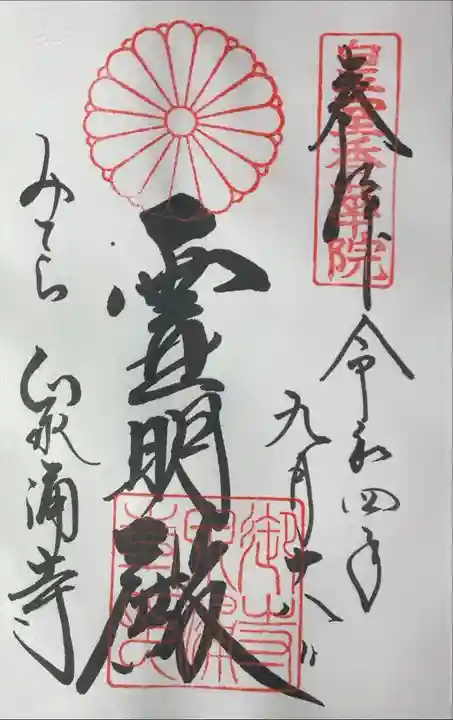 奉拝
皇室香華院
令和四年
九月十八日
霊明殿
みてら 泉涌寺